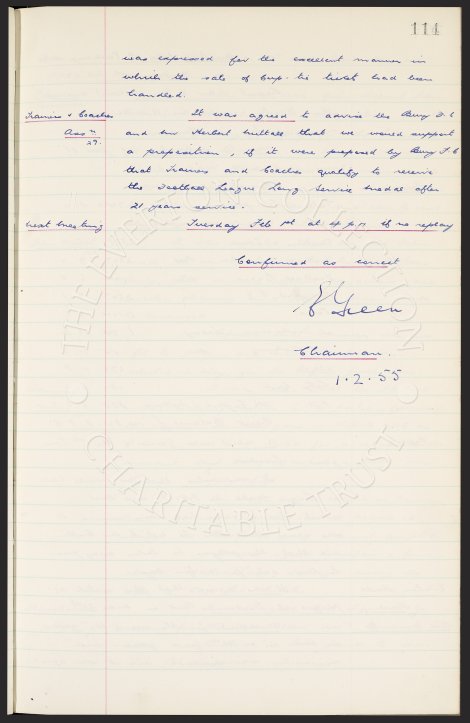 114
was expressed for the excellent manner in
which the sale of Cup-tie tickets had been
handled.
Trainers & Coaches It was agreed to advise the Bury F.C
Assn and Mr Herbert Nuttall that we would support
29. a proposition, if it were proposed by Bury F.C
that Trainers and Coaches qualify to receive
the Football League Long Service medal after
21 years service.
Next Meeting Tuesday Feb 1st at 4 p.m. if no replay
Confirmed as correct
Green
Chairman.
1.2.55
THE EVERTON COLLECTION
CHARITABLE TRUST